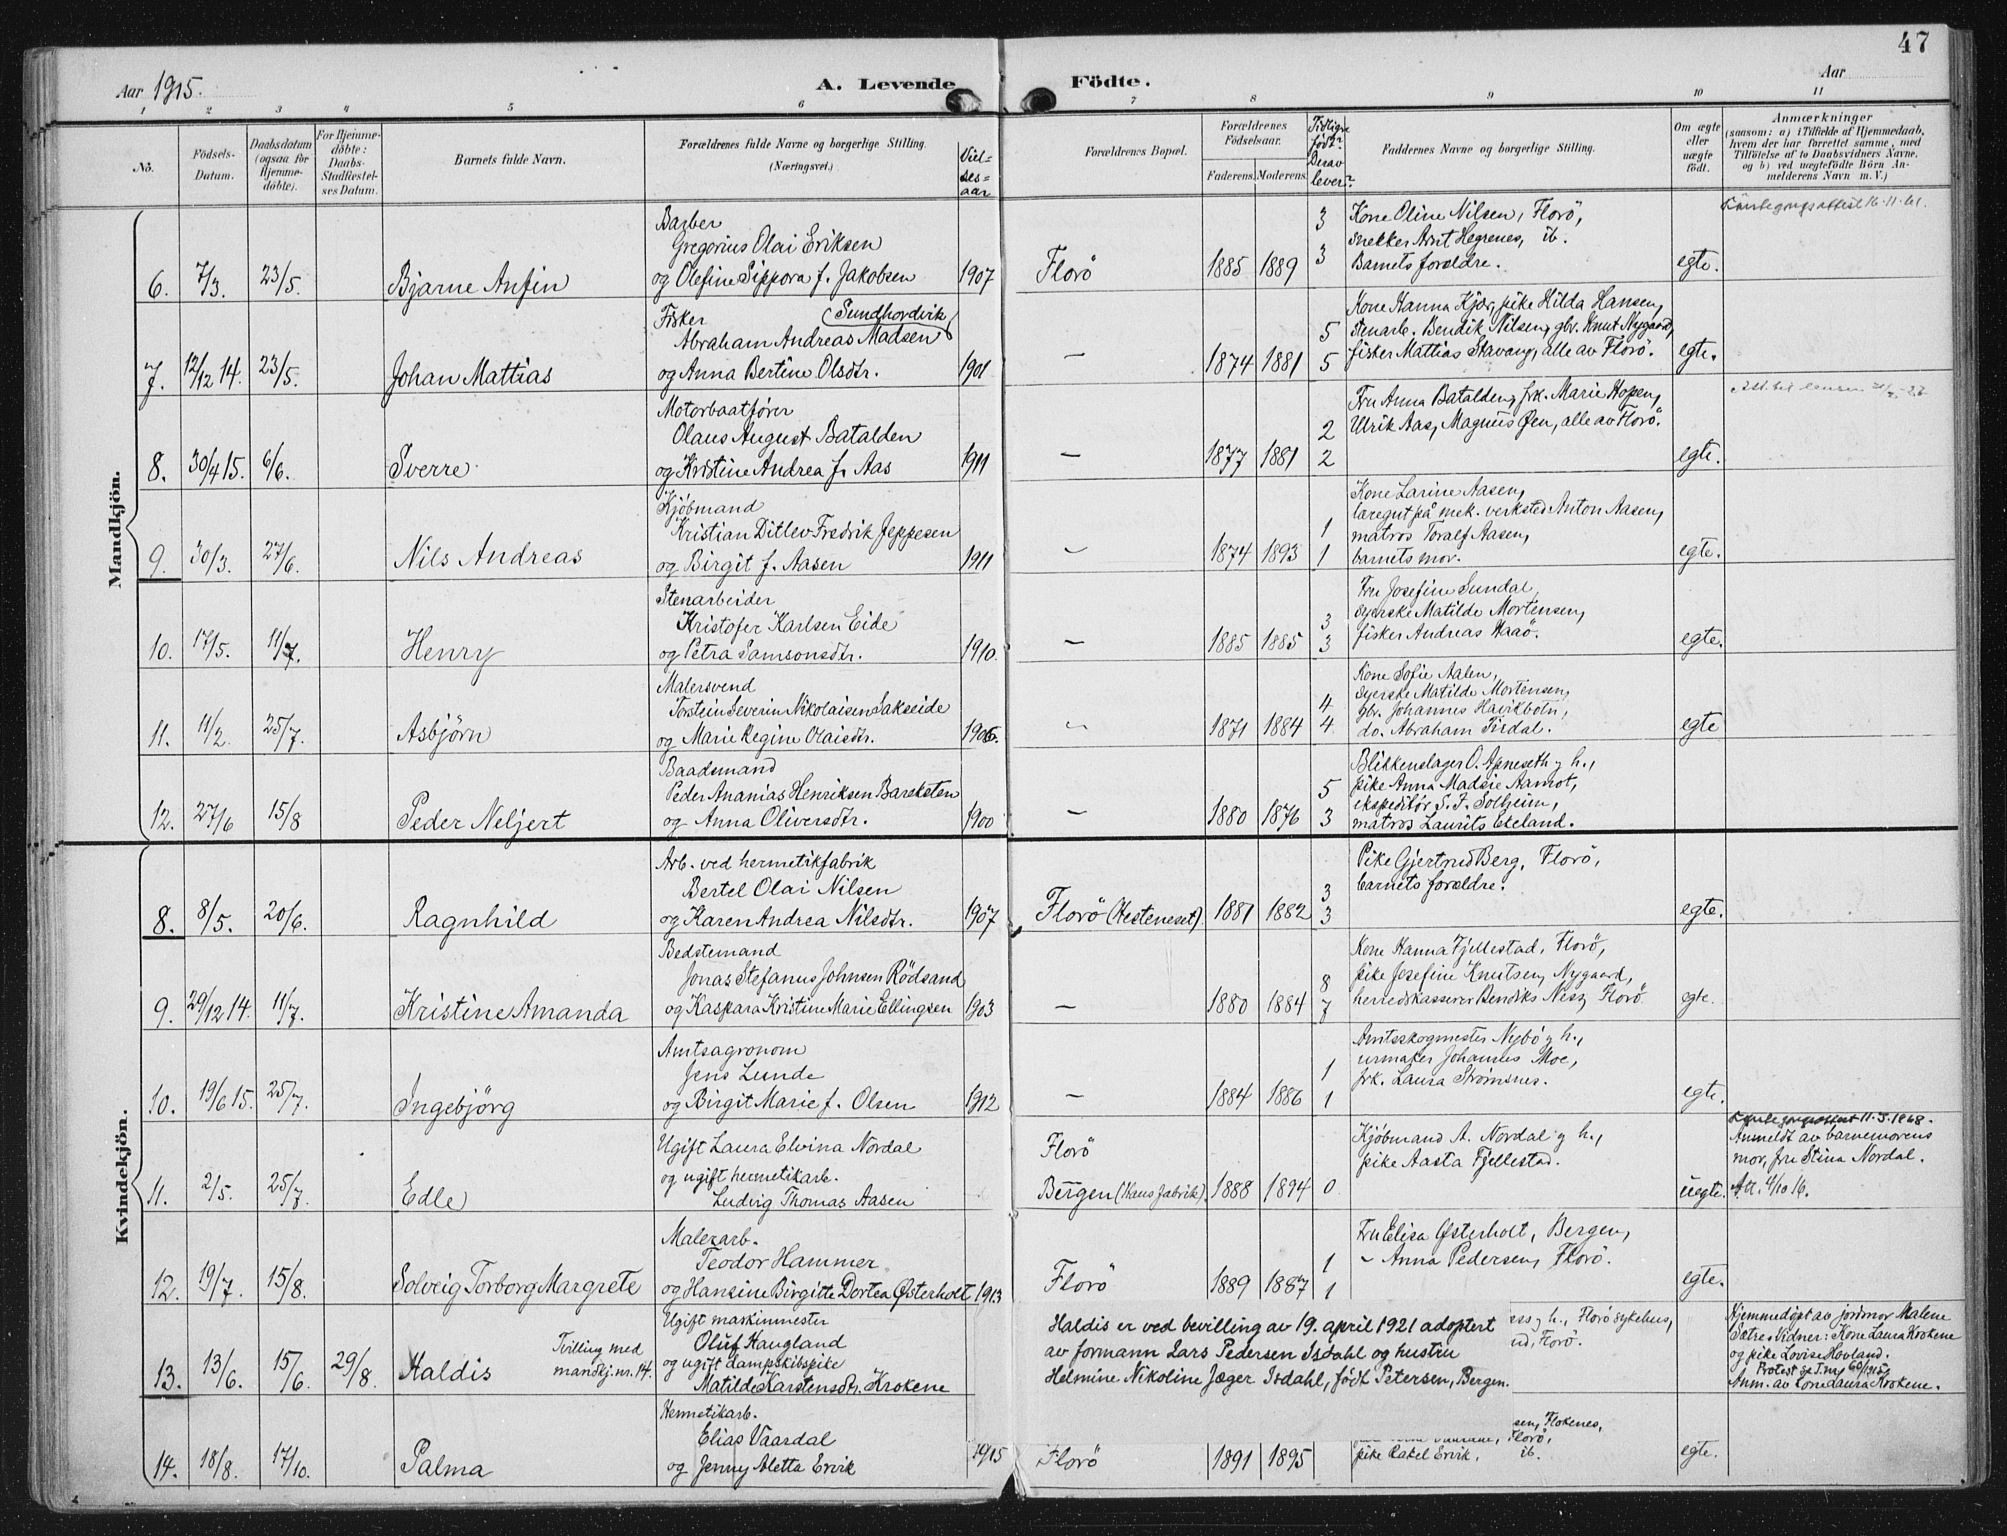 47
Aar 1915. A. Levende Födte. Aar
1 2 3 4 5 6 7 8 9 10 11
No.
Födsels-Datum.
Daabsdatum (ogsaa for Hjemmedöbte).
For Hjemmedöbte: Daabs-Stadfæstelses Datum.
Barnets fulde Navn.
Forældrenes fulde Navne og borgerlige Stilling. (Næringsvei.)
Vielsesaar
Forældrenes Bopæl.
Forældrenes Födselsaar.
Faderens. Moderens.
Tidligere født? Derav lever?
Faddernes Navne og borgerlige Stilling.
Om ægte eller uægte födt.
Anmærkninger
(saasom: a) i Tilfælde af Hjemmedaab, hvem der har forrettet samme, med Tilföielse af to Daabsvidners Navne, og b) ved uægtefödte Börn Anmelderens Navn m. V.)
Mandkjön.
Barber
Gregorius Olai Eriksen
6. 7/3. 23/5. Bjarne Anfin og Olefine Sippora f. Jakobsen 1907 Florö 1885 1889 3 3
Kone Oline Nilsen, Florö,
snekker Arnt Hegrenes, ib.
Barnets forældre. egte.
16.11.61.
Fisker (Sundhordvik)
Abraham Andreas Madsen
7. 12/12 14. 23/5. Johan Mattias og Anna Bertine Olsdtr. 1901 — 1874 1881 5 5
Kone Hanna Kjær, pike Hilda Hansen,
stenarb. Bendik Nilsen, gbr. Knut Nygaard,
fisker Mattias Stavang, alle av Florö. egte.
Motorbaatfører
Olaus August Batalden
8. 30/4 15. 6/6. Sverre og Kristine Andrea f. Aas 1911 — 1877 1881 2 2
Fru Anna Batalden, frk. Marie Hopen,
Ulrik Aas, Magnus Øen, alle av Florö. egte.
Kjøbmand
Kristian Ditlev Fredrik Jeppesen
9. 30/3. 27/6. Nils Andreas og Birgit f. Aasen 1911 — 1874 1893 1 1
Kone Larine Aasen,
læregut på mek. verksted Anton Aasen,
matros Toralf Aasen,
barnets mor. egte.
Stenarbeider
Kristofer Karlsen Eide
10. 17/5. 11/7. Henry og Petra Samsonsdtr. 1910. — 1885 1885 3 3
Fru Josefine Sundal,
syerske Matilde Mortensen,
fisker Andreas Haaö. egte.
Malersvend
Torstein Severin Nikolaisen Sakseide
11. 11/2. 25/7. Asbjörn og Marie Regine Olaisdtr. 1906. 1871 1884 4 4
Kone Sofie Aalen,
syerske Matilde Mortensen,
gbr. Johannes Havikbotn,
do. Abraham Tisdal. egte
Baadsmand
Peder Ananias Henriksen Bareksten
12. 27/6 15/8 Peder Neljert og Anna Oliversdtr. 1900 — 1880 1876 5 3
Blikkenslager O. Apneseth g h.,
pike Anna Madsie Aamot,
ekspeditör S. F. Solheim,
matros Laurits Ekeland.
Kvindekjön.
Arb. ved hermetikfabrik
Bertel Olai Nilsen
8. 8/5. 20/6. Ragnhild og Karen Andrea Nilsdtr. 1907 Florö (Hesteneset). 1881 1882 3 3
Pike Gjertrud Berg, Florö,
barnets forældre. egte.
Bedstemand
Jonas Stefanus Johnsen Rödsand
9. 29/12 14. 11/7. Kristine Amanda og Kaspara Kristine Marie Ellingsen 1903 — 1880 1884 8 7
Kone Hanna Fjellestad, Florö,
pike Josefine Knutsen, Nygaard,
herredskasserer Bendiks Nes, Florö egte.
Amtsagronom
Jens Lunde
10. 19/6 15. 25/7. Ingebjörg og Birgit Marie f. Olsen 1912 — 1884 1886 1 1
Amtsskogmester Nybö g h.,
urmaker Johannes Moe,
frk. Laura Strömsnes. egte.
Ugift Laura Elvina Nordal
og ugift hermetikarb.
11. 2/5. 25/7. Edle Ludvig Thomas Aasen
Florö
Bergen (Hans fabrik). 1888 1894 0
Kjöbmand A. Nordal g h.,
pike Aasta Fjellestad. uegte.
11.3.1968.
Anmeldt av barnemorens
mor, fru Stina Nordal.
Att. 4/10 16.
Malerarb.
Teodor Hammer
12. 19/7. 15/8. Solveig Torborg Margrete og Hansine Birgitte Dortea Østerholt 1913 Florö 1889 1887 1 1
Fru Elisa Østerholt, Bergen,
~ Anna Pedersen, Florö. egte.
Ugift maskinmester
Oluf Haugland
og ugift dampskibspike
Matilde Karstensdtr. Krokene
13. 13/6. 15/6. 29/8. Haldis Tvilling med mandkj. nr. 14.
Haldis er ved bevilling av 19. april 1921 adoptert
av formann Lars Pedersen Isdahl og hustru
Helmine Nikoline Jæger Isdahl, født Petersen, Bergen.
ess g h., Florö sykehus,
nd, Florö.
Hjemmedöpt av jordmor Malene
Sætre. Vidner: Kone Laura Krokene
og pike Lovise Hovland.
Anm. av kone Laura Krokene.
Hermetikarb.
Elias Vaardal
14. 18/8. 17/10. Palma og Jenny Aletta Ervik 1915 Florö 1891 1895
sen, Flokenes,
Florö,
pike Rakel Ervik. ib. egte.